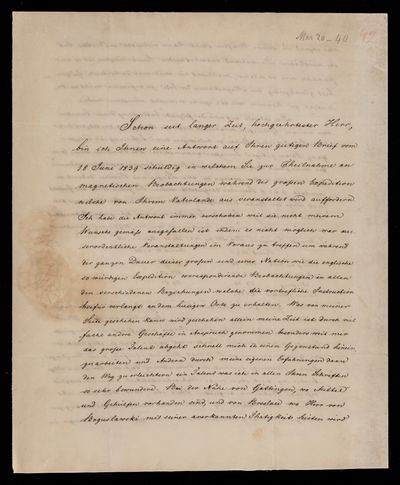 Mar 20 – 40
Schon seit langer Zeit, hochgeehrtester Herr,
bin ich Ihnen eine Antwort auf Ihren gütigen Brief vom
18 Juni 1839 schuldig in welchem Sie zur Theilnahme an
magnetischen Beobachtungen während der großen Expedition
welche von Ihrem Vaterlande aus veranstaltet wird auffordern
Ich habe die Antwort immer verschoben weil sie nicht meinem
Wunsche gemäß ausgefallen ist indem es nicht möglich war aus-
serordentliche Veranstaltungen im Voraus zu treffen um während
der ganzen Dauer dieser großen und einer Nation wie die englische
so würdigen Expedition correspondirende Beobachtungen in allen
den verschiedenen Beziehungen welche die vortreffliche Instruction
hierfür verlangt an dem hiesigen Orte zu erhalten. Was von meiner
Seite geschehen kann wird geschehen allein meine Zeit ist durch viel
fache andere Geschäfte in Anspruch genommen besonders weil mir
das große Talent abgeht schnell mich in einen Gegenstand hinein
zuarbeiten und Andern durch meine eigenen Erfahrungen dann
den Weg zu erleichtern ein Talent was ich in allen Ihren Schriften
so sehr bewundere. Bei der Nähe von Göttingen, wo Mittel
und Gehülfen vorhanden sind, und von Breslau wo Herr von
Boguslawski mit seiner anerkannten Thätigkeit wird